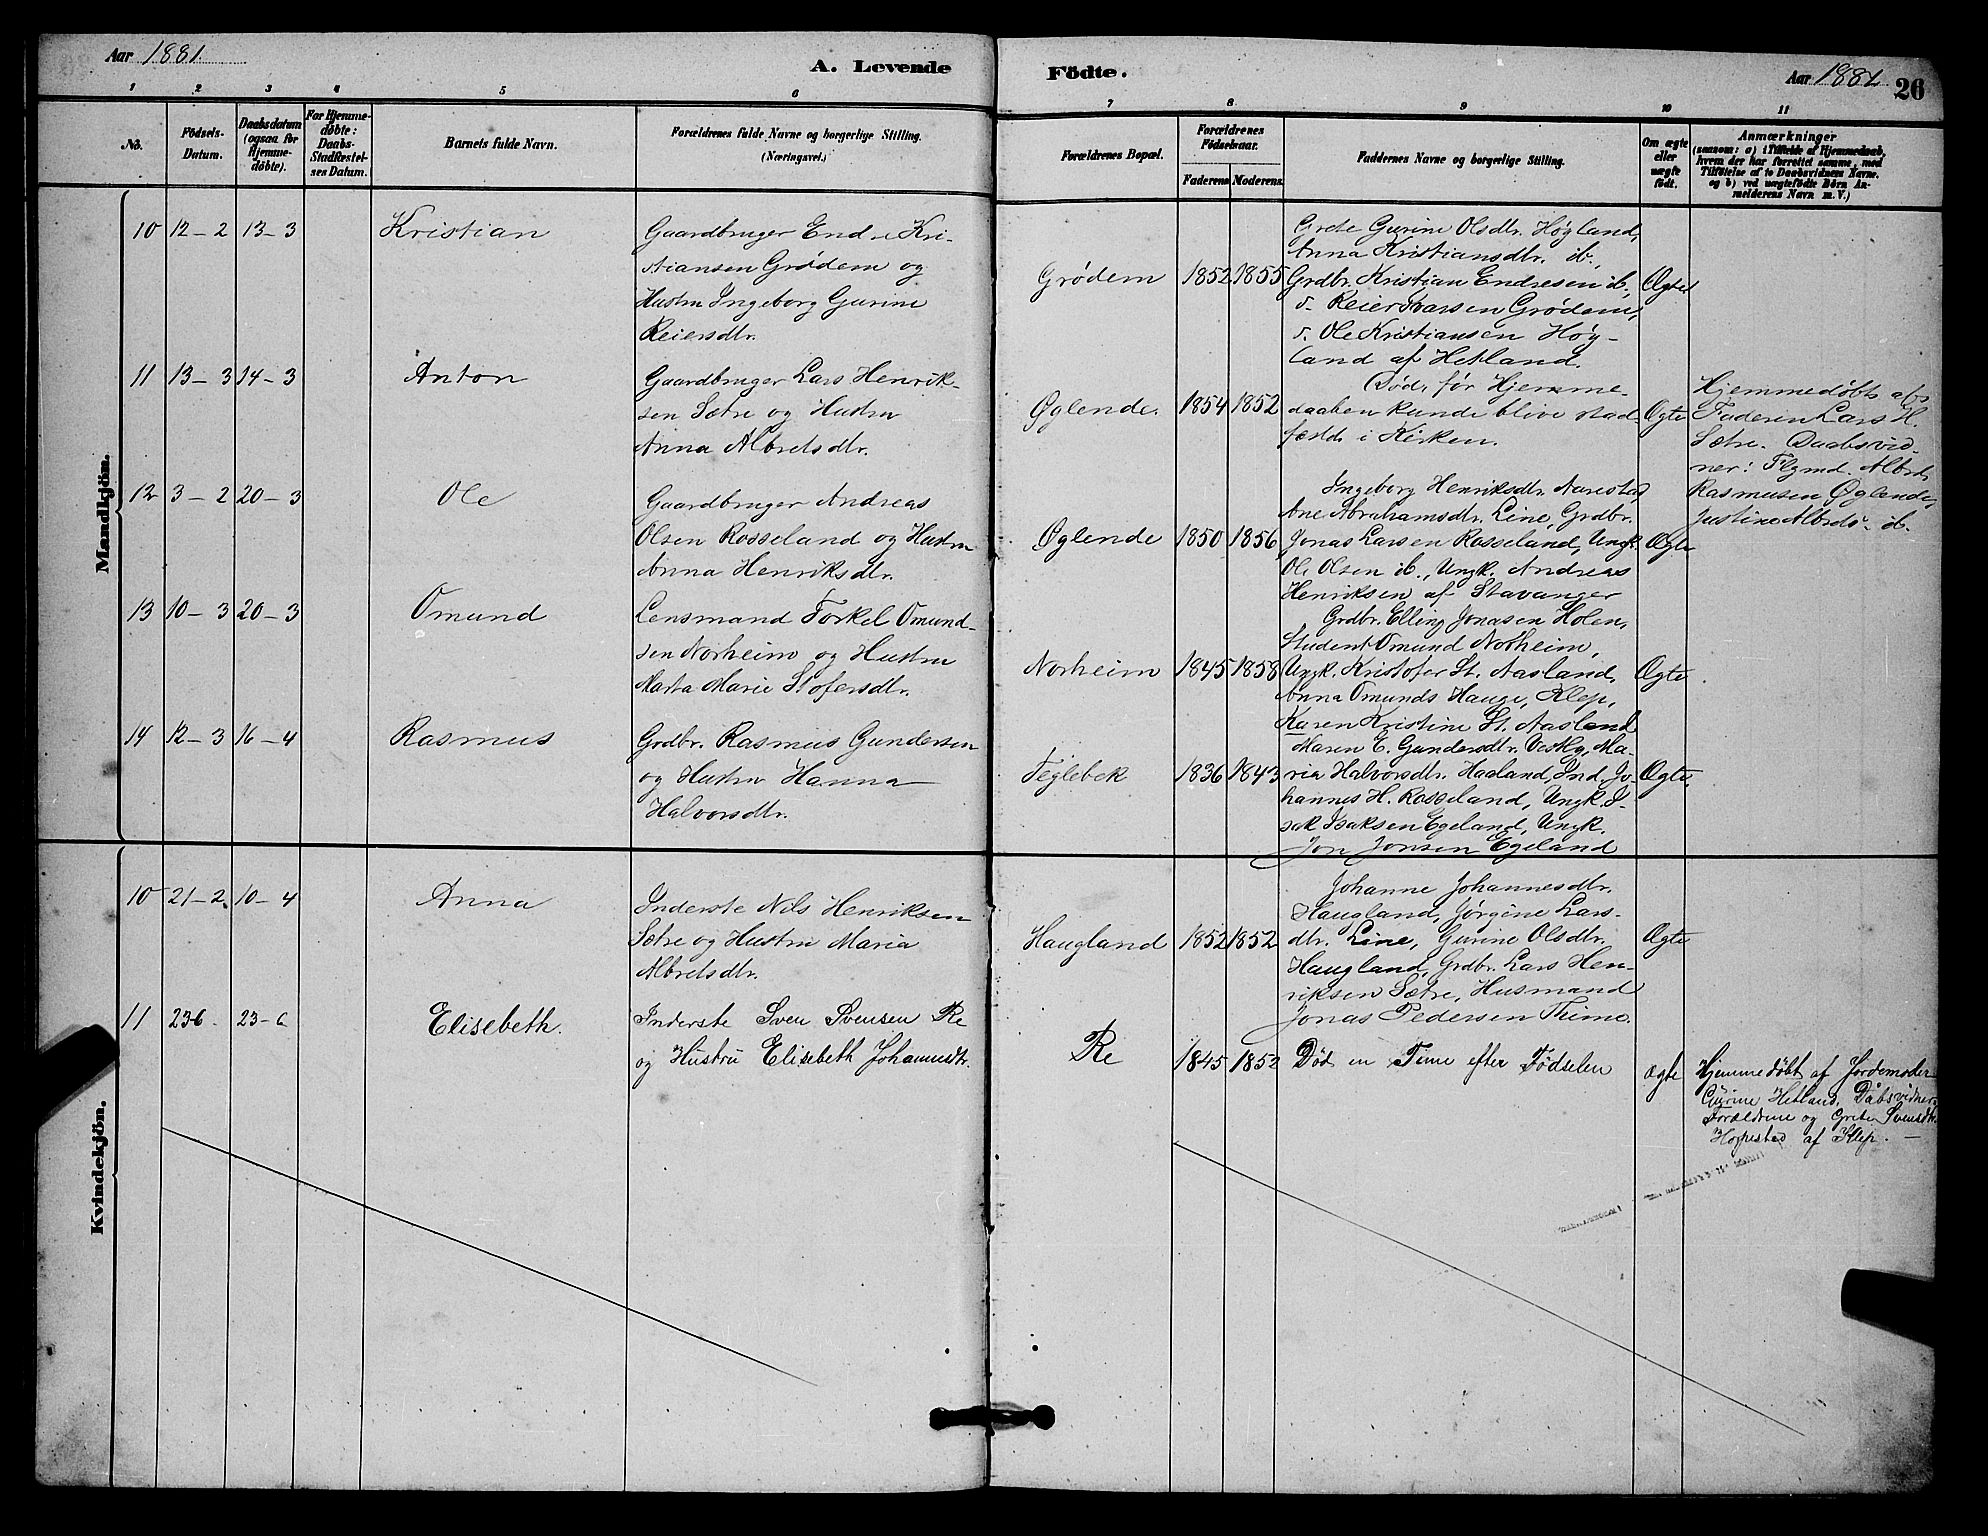 Aar 1881.
A. Levende
1 2 3 4 5 6
No.
Födsels-Datum.
Daabsdatum (ogsaa for Hjemme-döbte).
For Hjemme-döbte: Daabs-Stadfæstel-ses Datum.
Barnets fulde Navn.
Forældrenes fulde Navne og borgerlige Stilling.
(Næringsvei.)
Födte.
Aar 1881
26
7 8 9 10 11
Forældrenes Bopæl.
Forældrenes Födselsaar.
Faderens Moderens
Faddernes Navne og borgerlige Stilling.
Om ægte eller uægte födt.
Anmærkninger
(saasom: a) i Tilfælde af Hjemmedaab,
hvem der har forrettet samme, med
Tilföielse af to Daabsvidners Navne.
og b) ved uægtefödte Börn An-
melderens Navn m. V.)
Mandkjön.
10 12-2 13-3 Kristian
Gaardbruger Endre Kri-
stiansen Grødem og
Hustru Ingeborg Gurine
Reiersdtr.
Grødem 1852 1855
Grete Gurine Olsdtr. Høgland,
Anna Kristiansdtr. ib.,
Grdbr. Kristian Endresen ib.,
Reier Ivarsen Grødem,
Ole Kristiansen Høg-
land af Hetland.
Ægte
11 13-3 14-3 Anton
Gaardbruger Lars Henrik-
sen Sætre og Hustru
Anna Albretsdtr.
Øglende. 1854 1852
Død, før Hjemme-
daaben kunde blive stad-
fæstet i Kirken.
Ægte
Hjemmedøbt af
Faderen Lars H.
Sætre. Daabsvid-
ner: Albret
Rasmusen Øglende,
Justine Albrdtr. ib.
12 3-2 20-3 Ole
Gaardbruger Andreas
Olsen Rosseland og Hustru
Anna Henriksdtr.
Øglende 1850 1856
Ingeborg Henriksdtr. Aarestad,
Ane Abrahamsdtr. Line, Grdbr.
Jonas Larsen Rosseland, Ungk.
Ole Olsen ib., Ungk. Andreas
Henriksen af Stavanger
Ægte
13 10-3 20-3 Omund
Lensmand Torkel Omund-
sen Norheim og Hustru
Marta Marie Stofersdtr.
Norheim 1845 1858
Grdbr. Elling Jonasen Holen,
Student Omund Norheim,
Ungk. Kristofer St. Aasland,
Anna Omunds Hauge, Klep,
Karen Kristine St. Aasland
Ægte
14 12-3 16-4 Rasmus
Grdbr. Rasmus Gundersen
og Hustru Hanna
Halvorsdtr.
Teglebek 1836 1843
Maren E. Gundersdtr. Vestly, Ma-
ria Halvorsdtr. Haaland, Ind. Jo-
hannes H. Rosseland, Ungk. I-
sak Isaksen Egeland, Ungk.
Jon Jonsen Egeland
Ægte.
Kvindekjön.
10 21-2. 10-4 Anna
Inderste Nils Henriksen
Sætre og Hustru Maria
Albretsdtr.
Haugland 1852 1852
Johanne Johannesdtr.
Haugland, Jørgine Lars-
dtr. Line, Gurine Olsdtr.
Haugland, Grdbr. Lars Hen-
riksen Sætre, Husmand
Jonas Pedersen Thime.
Ægte
11 23-6. 23-6 Elisebeth.
Inderste Sven Svensen Re
og Hustru Elisebeth Johannsdtr.
Re 1845 1852
Død en Time efter Fødselen
ægte
Hjemmedøbt af Jordemoder
Gurine Hetland, Dåbsvidner:
Forældrene og Grete Svensdtr.
af Klep. —